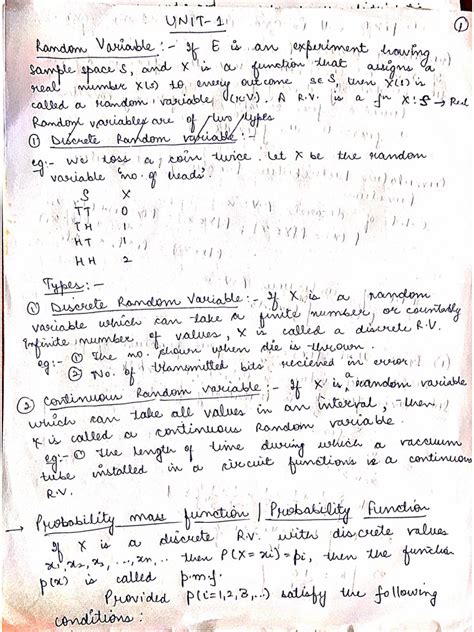 UNIT-1
1
Random Variable :- If E is an experiment having
sample space S, and X is a function that assigns a
real number X(s) to every outcome s∈S, then X(s) is
called a random variable (R.V). A R.V. is a fn X: S → Real
Random variables are of two types
① Discrete Random variable :-
eg:- We toss a coin twice. Let X be the random
variable 'no. of heads'.
S X
TT 0
TH 1
HT 1
HH 2
Types :-
① Discrete Random Variable :- If X is a random
variable which can take a finite number or countably
infinite number of values, X is called a discrete R.V.
eg:- ① The no. shown when die is thrown.
② No. of transmitted bits recieved in error
② Continuous Random variable :- If X is a random variable
which can take all values in an interval, then
X is called a continuous Random variable.
eg:- ① The length of time during which a vacuum
tube installed in a circuit functions is a continuous
R.V.
→ Probability mass function | Probability Function
If X is a discrete R.V. with discrete values
x1, x2, x3, ..., xn, ... then P(X = xi) = pi, then the function
p(x) is called p.m.f.
Provided p(i=1,2,3,...) satisfy the following
conditions :